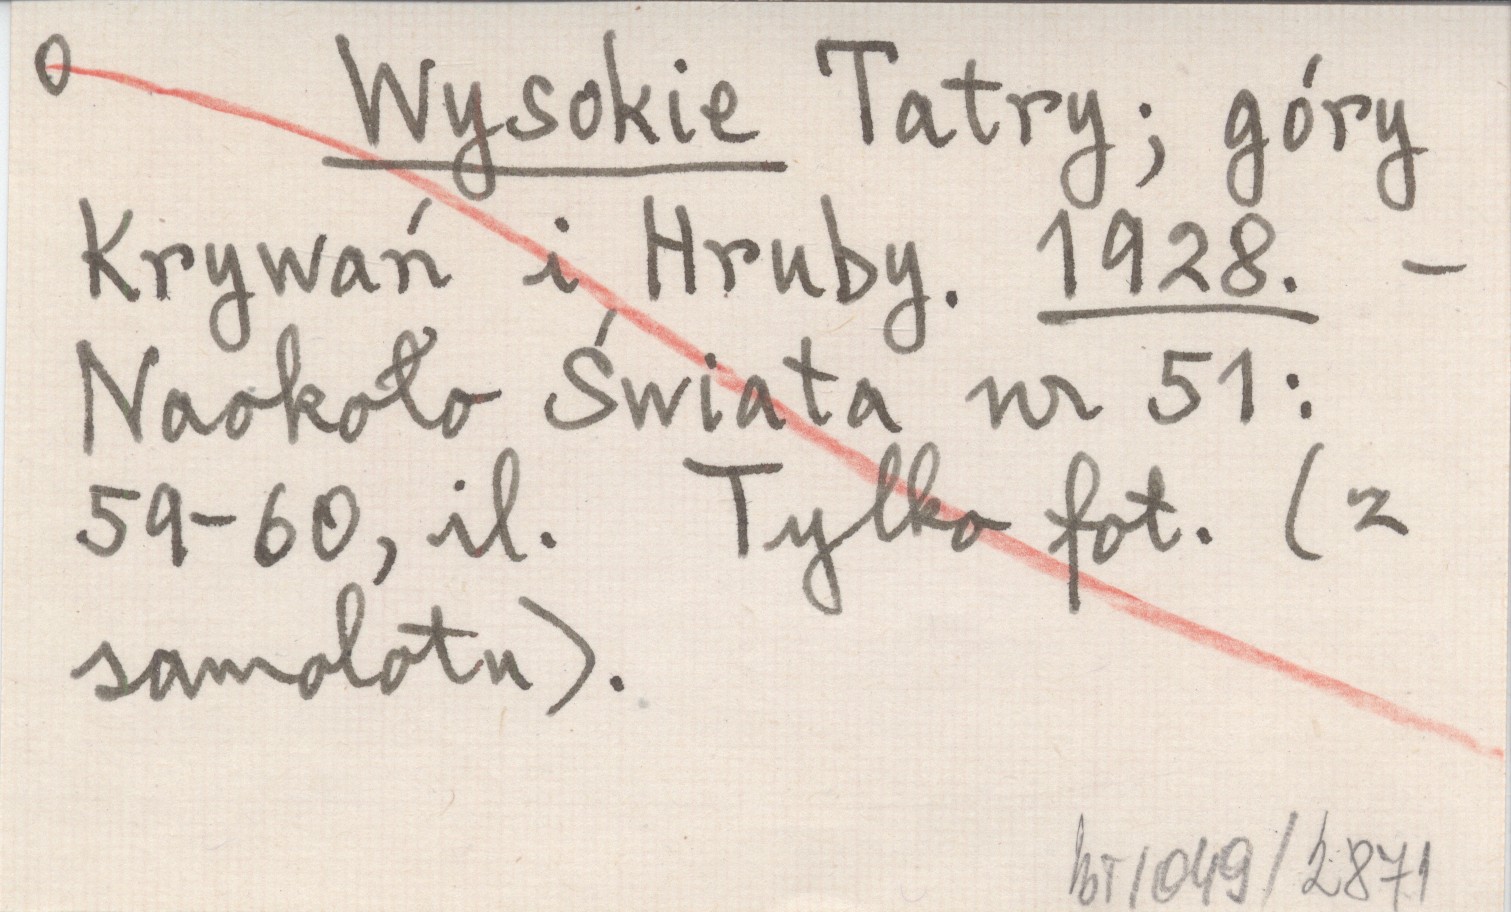 0 Wysokie Tatry; góry
Krywań i Hruby. 1928. –
Naokoło Świata nr 51:
59-60, il. Tylko fot. (z
samolotu).
/049/2871